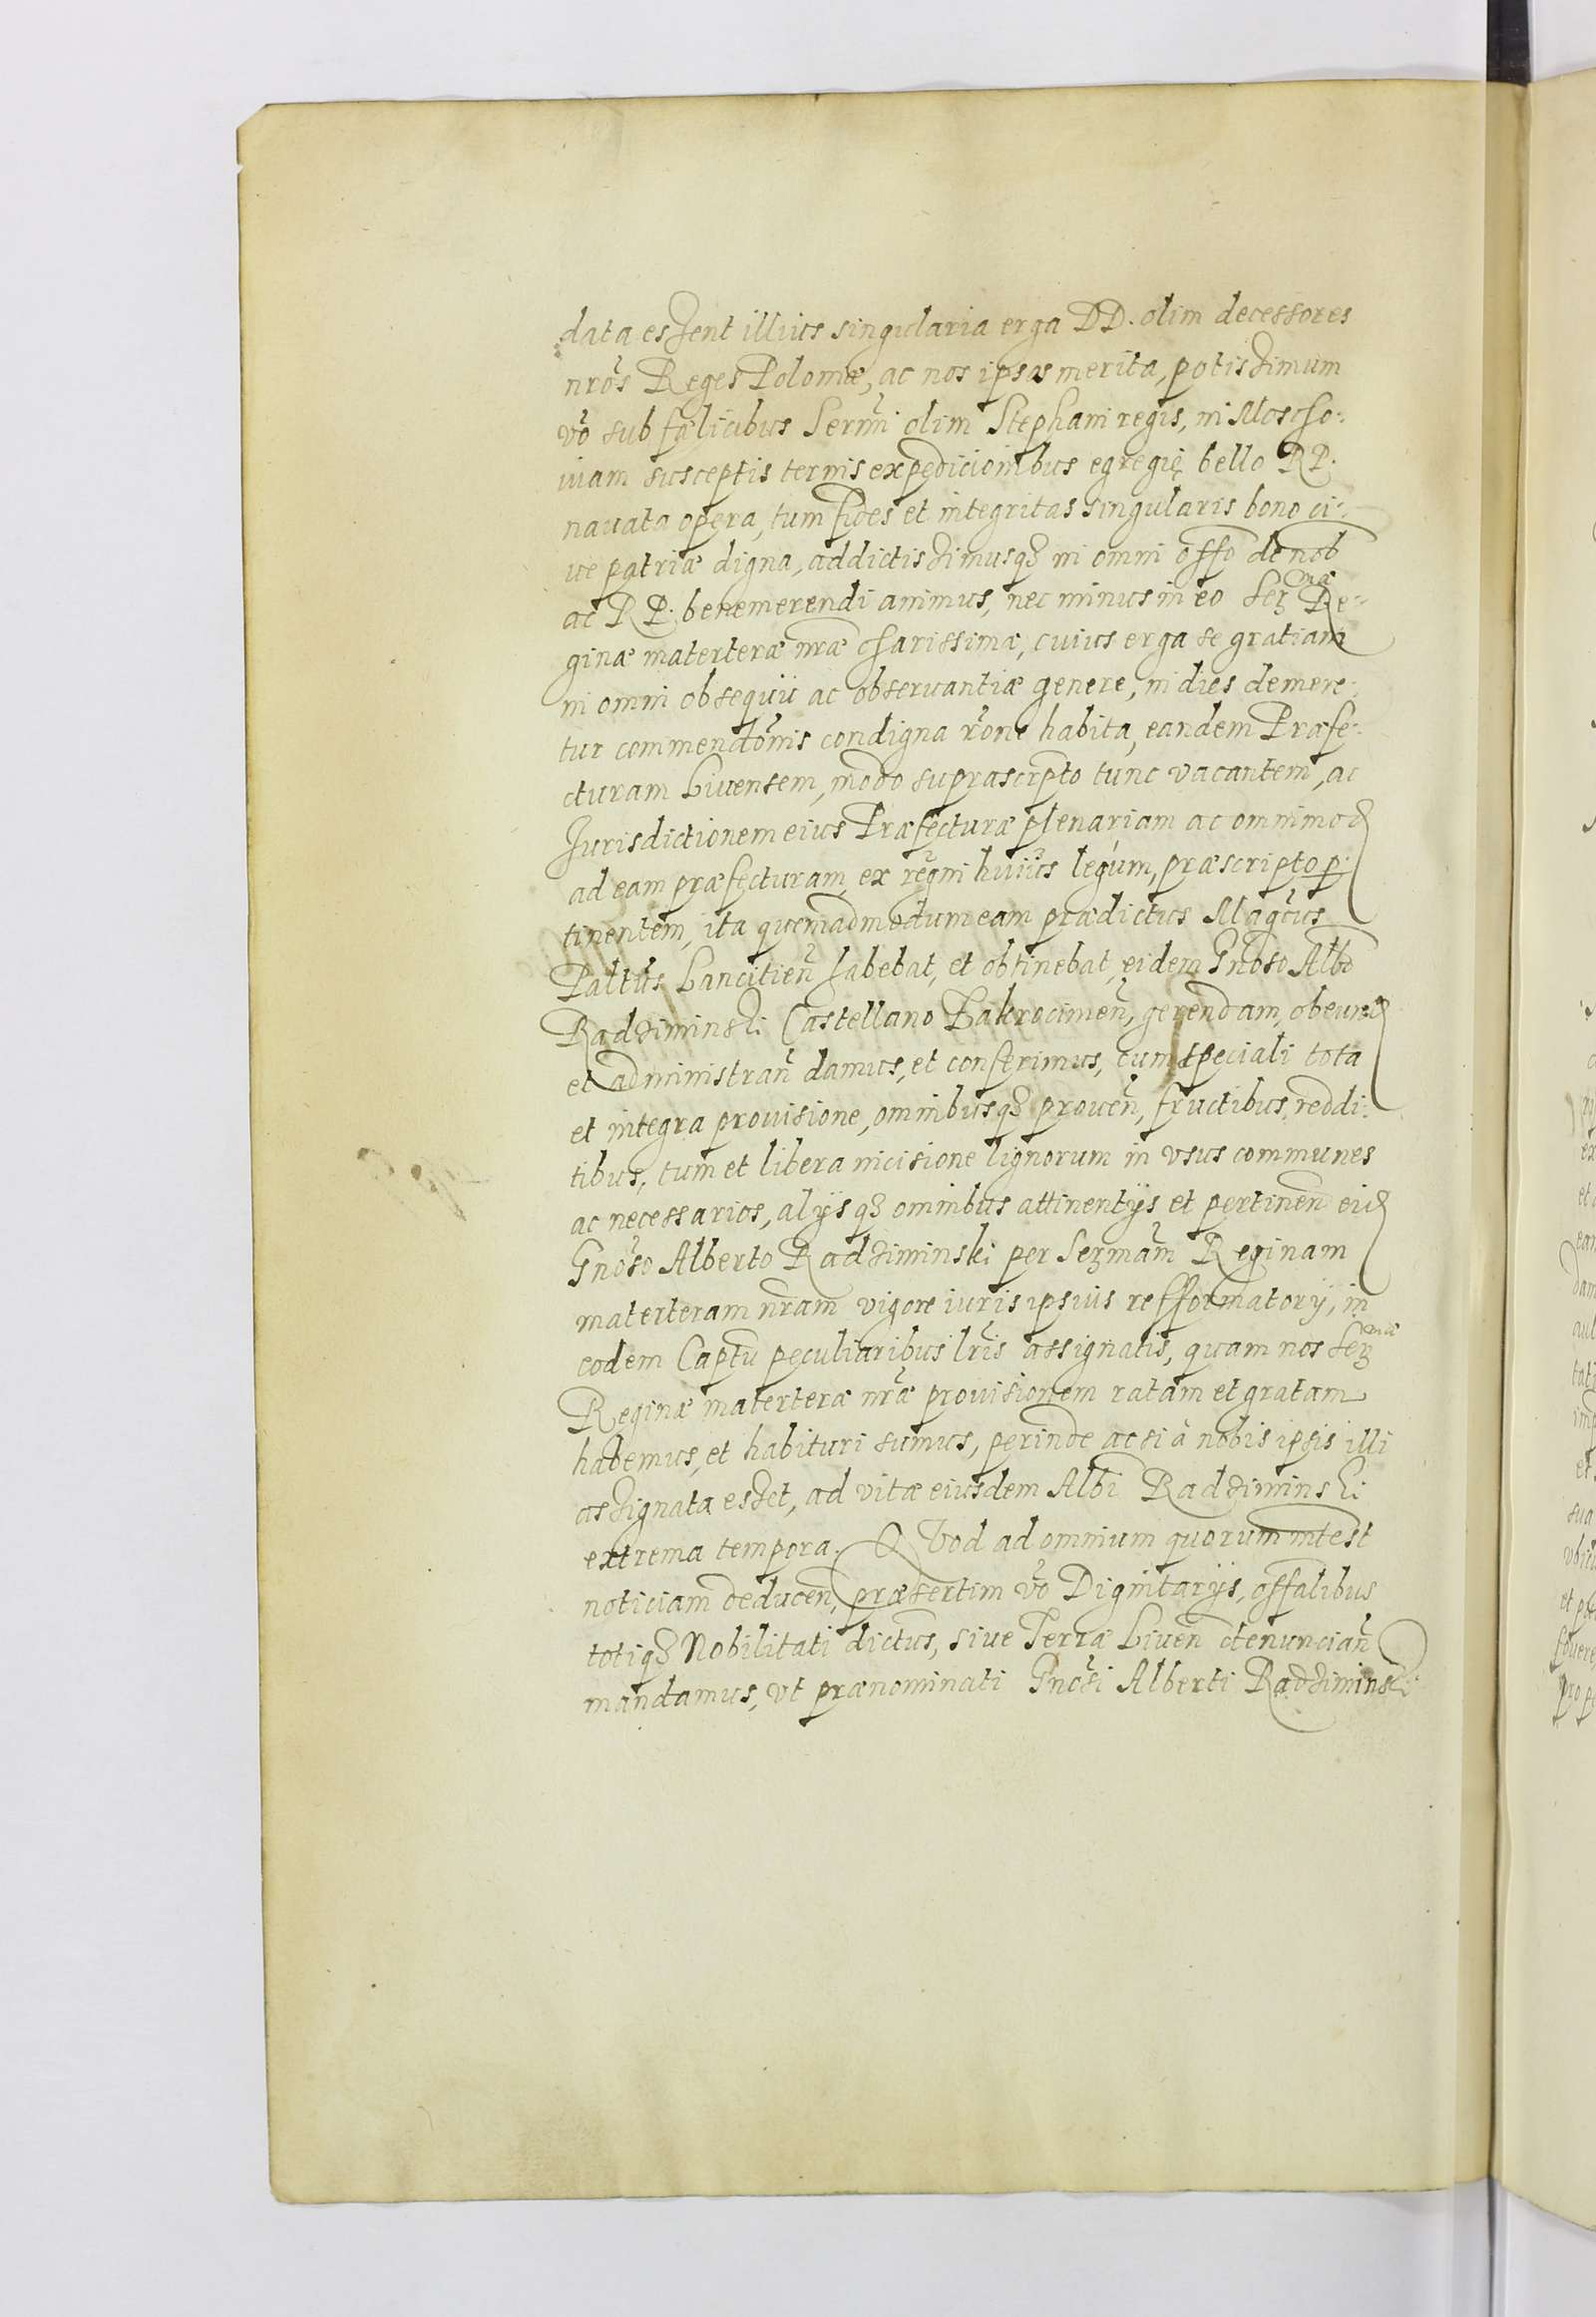 data essent illius singularia erga DD. olim decessores
nrõs Reges Poloniæ, ac nos ipsos merita, potissimum
võ sub fælicibus Sermĩ olim Stephani regis, in Moscho:
uiam susceptis ternis expedicionibus egregię bello RP.
nauata opera, tum fides et integritas singularis bono ci:
ue patriæ digna, addictissimusq₃ in omni offo de nob
ac RP. benemerendi animus, nec minus in eo Serᵐᵃᵉ Re:
ginæ materteræ nræ charissimæ, cuius erga se gratiam
in omni obsequii ac obseruantiæ genere, in dies demere:
tur commendõnis condigna rõne habita, eandem Præfe:
cturam Liuensem, modo suprascrpto tunc vacantem, ac
Jurisdictionem eius Præfecturæ plenariam ac omnimod
ad eam præfecturam ex regni huius legum, præscripto p:
tinentem, ita quemadmodum eam prædictus Magcus
Paltus Lancitień habebat, et obtinebat, eidem Gnoso Albo
Radziminski Castellano Zakrocimeñ, gerendam, obeund
et administrañ damus, et conferimus, cum speciali tota
et integra prouisione, omnibusq₃ proueñ, fructibus, reddi:
tibus, tum et libera incisione lignorum in vsus communes
ac necessarios, alijsq₃ omnibus attinentijs et pertineñ eid
Gnoso Alberto Radziminski per Sermam Reginam
materteram nram vigore iuris ipsius refformatorij, in
eodem Captu peculiaribus lris assignatis, quam nos Serᵐᵃᵉ
Reginæ materteræ nræ prouisionem ratam et gratam
habemus, et habituri sumus, perinde ac si à nobis ipsis illi
assignata esset, ad vitæ eiusdem Albi Radziminski
extrema tempora. QVod ad omnium quorum intest
noticiam deduceñ, præsertim võ Dignitarijs, offalibus
totiq₃ Nobilitati dictus, siue Terræ Liueñ denunciañ
mandamus, vt prænominati Gnosi Alberti Radziminski